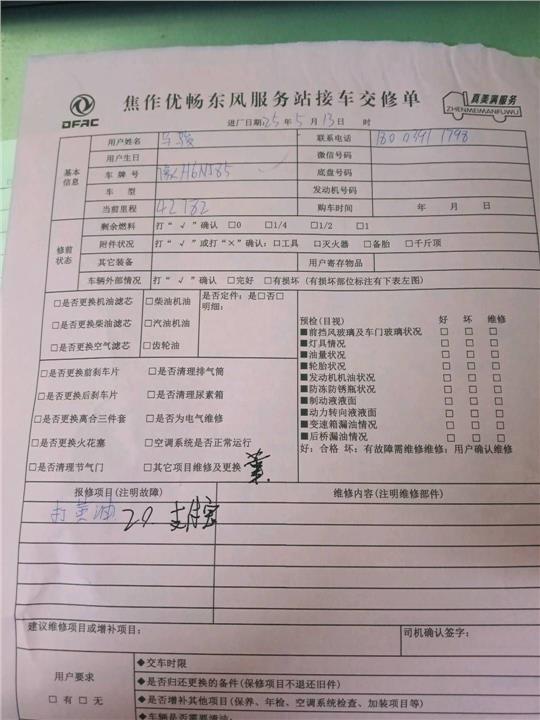 DFAC
焦作优畅东风服务站接车交修单
真美满服务
ZHENMEIMANFUWU
进厂日期:25年5月13日 时
基本信息
用户姓名
联系电话 180 0391 1798
用户生日
微信号码
车牌号 豫H6NJ85
底盘号码
车 型
发动机号码
当前里程 42782
购车时间 年 月 日
修前状态
剩余燃料 打“√”确认 □0 □1/4 □1/2 □1
附件状况 打“√”或打“×”确认:□工具 □灭火器 □备胎 □千斤顶
其它装备
用户寄存物品
车辆外部情况 打“√”确认 □完好 □有损坏 (有损坏部位标注有下表左图)
□是否更换机油滤芯 □柴油机油
□是否更换柴油滤芯 □汽油机油
□是否更换空气滤芯 □齿轮油
是否定件:是□否□
明细:
□是否更换前刹车片 □是否清理排气筒
□是否更换后刹车片 □是否清理尿素箱
□是否更换离合三件套 □是否为电气维修
□是否更换火花塞 □空调系统是否正常运行
□是否清理节气门 □其它项目维修及更换
预检(目视) 好 坏 维修
■前挡风玻璃及车门玻璃状况 □ □ □
■灯具情况 □ □ □
■油量状况 □ □ □
■轮胎状况 □ □ □
■发动机机油状况 □ □ □
■防冻防锈瓶状况 □ □ □
■制动液液面 □ □ □
■动力转向液液面 □ □ □
■变速箱漏油情况 □ □ □
■后桥漏油情况 □ □ □
好:合格 坏:有故障需维修维修:用户确认维修
报修项目(注明故障)
维修内容(注明维修部件)
打黄油 20 支付宝
建议维修项目或增补项目:
司机确认签字:
用户要求
□有□无
◆交车时限
◆是否归还更换的备件(保修项目不退还旧件)
◆是否增补其他项目(保养、年检、空调系统检查、加装项目等)
◆车辆是否需要清洁: